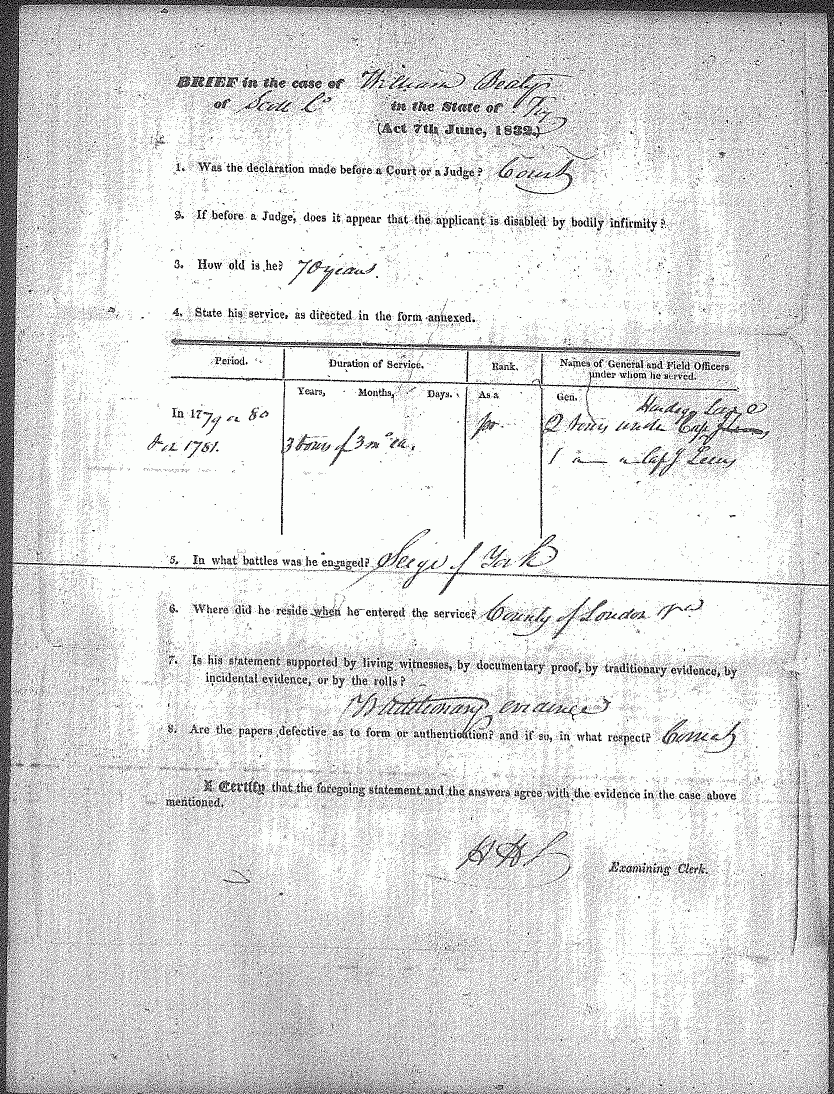 BRIEF in the case of William Beaty
of Scott Co in the State of Ky
(Act 7th June, 1832.)
1. Was the declaration made before a Court or a Judge? Court
2. If before a Judge, does it appear that the applicant is disabled by bodily infirmity?
3. How old is he? 70 years.
4. State his service, as directed in the form annexed.
Period. Duration of Service. Rank. Names of General and Field Officers
under whom he served.
Years, Months, Days. As a Gen.
In 1779 or 80 pr. 2 tours under Cap
& in 1781. 3 tours of 3 mo ea. 1 Cap J Lewis
5. In what battles was he engaged? Seige of York
6. Where did he reside when he entered the service? County of Loudon Va
7. Is his statement supported by living witnesses, by documentary proof, by traditionary evidence, by
incidental evidence, or by the rolls?
Traditionary evidence
8. Are the papers defective as to form or authentication? and if so, in what respect? Correct
I Certify that the foregoing statement and the answers agree with the evidence in the case above
mentioned.
Examining Clerk.